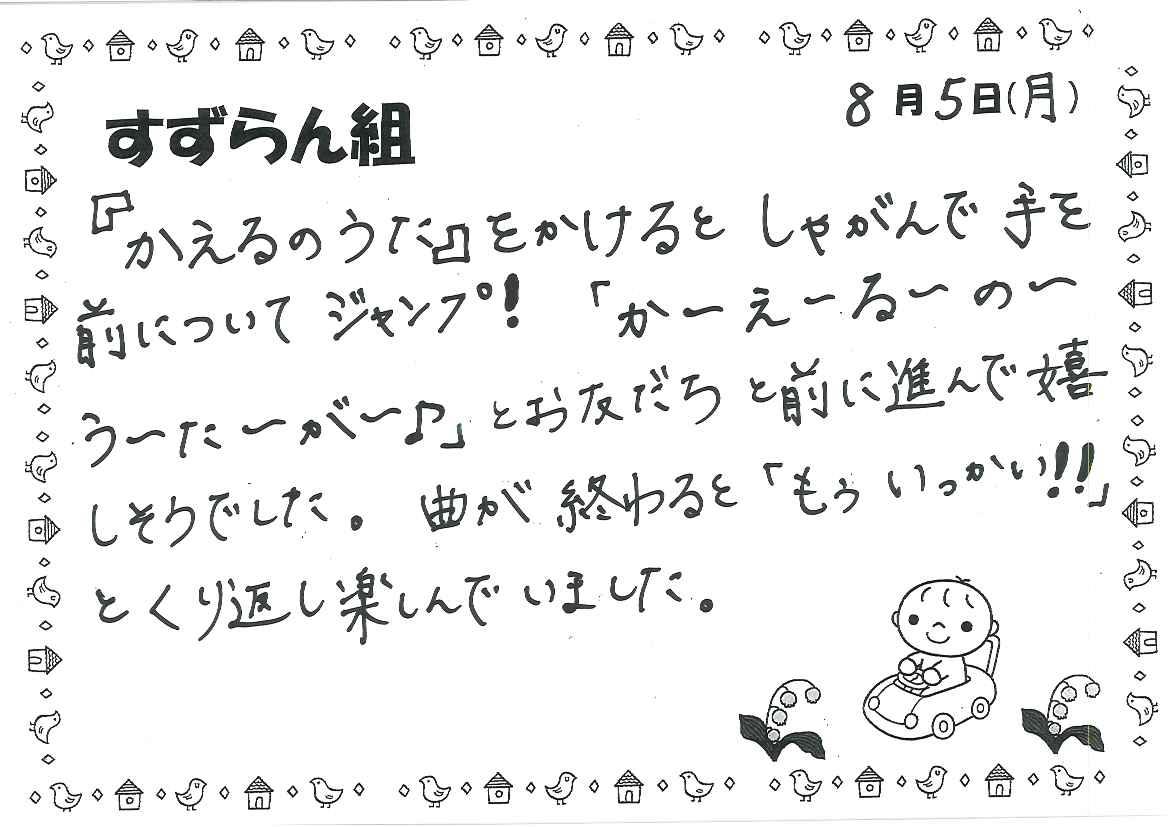 すずらん組
8月5日(月)
『かえるのうた』をかけると しゃがんで 手を
前についてジャンプ！「かーえーるーのー
うーたーがー♪」とお友だちと前に進んで嬉
しそうでした。曲が終わると「もぅ いっかい!!」
とくり返し楽しんでいました。